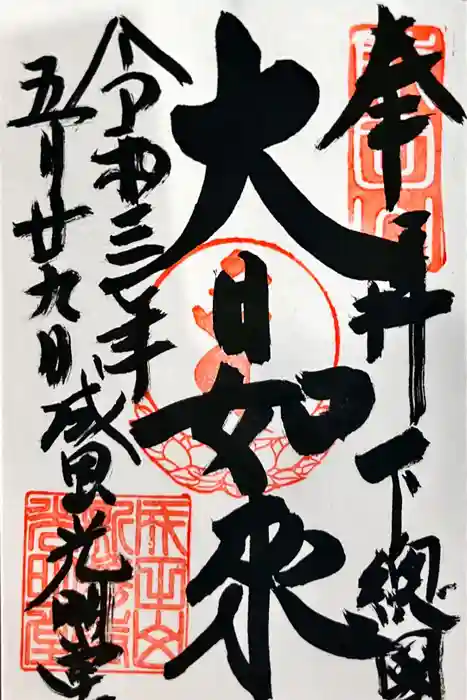 奉拝 下総國
大日如来
令和三年
五月廿九日 成田 光明堂